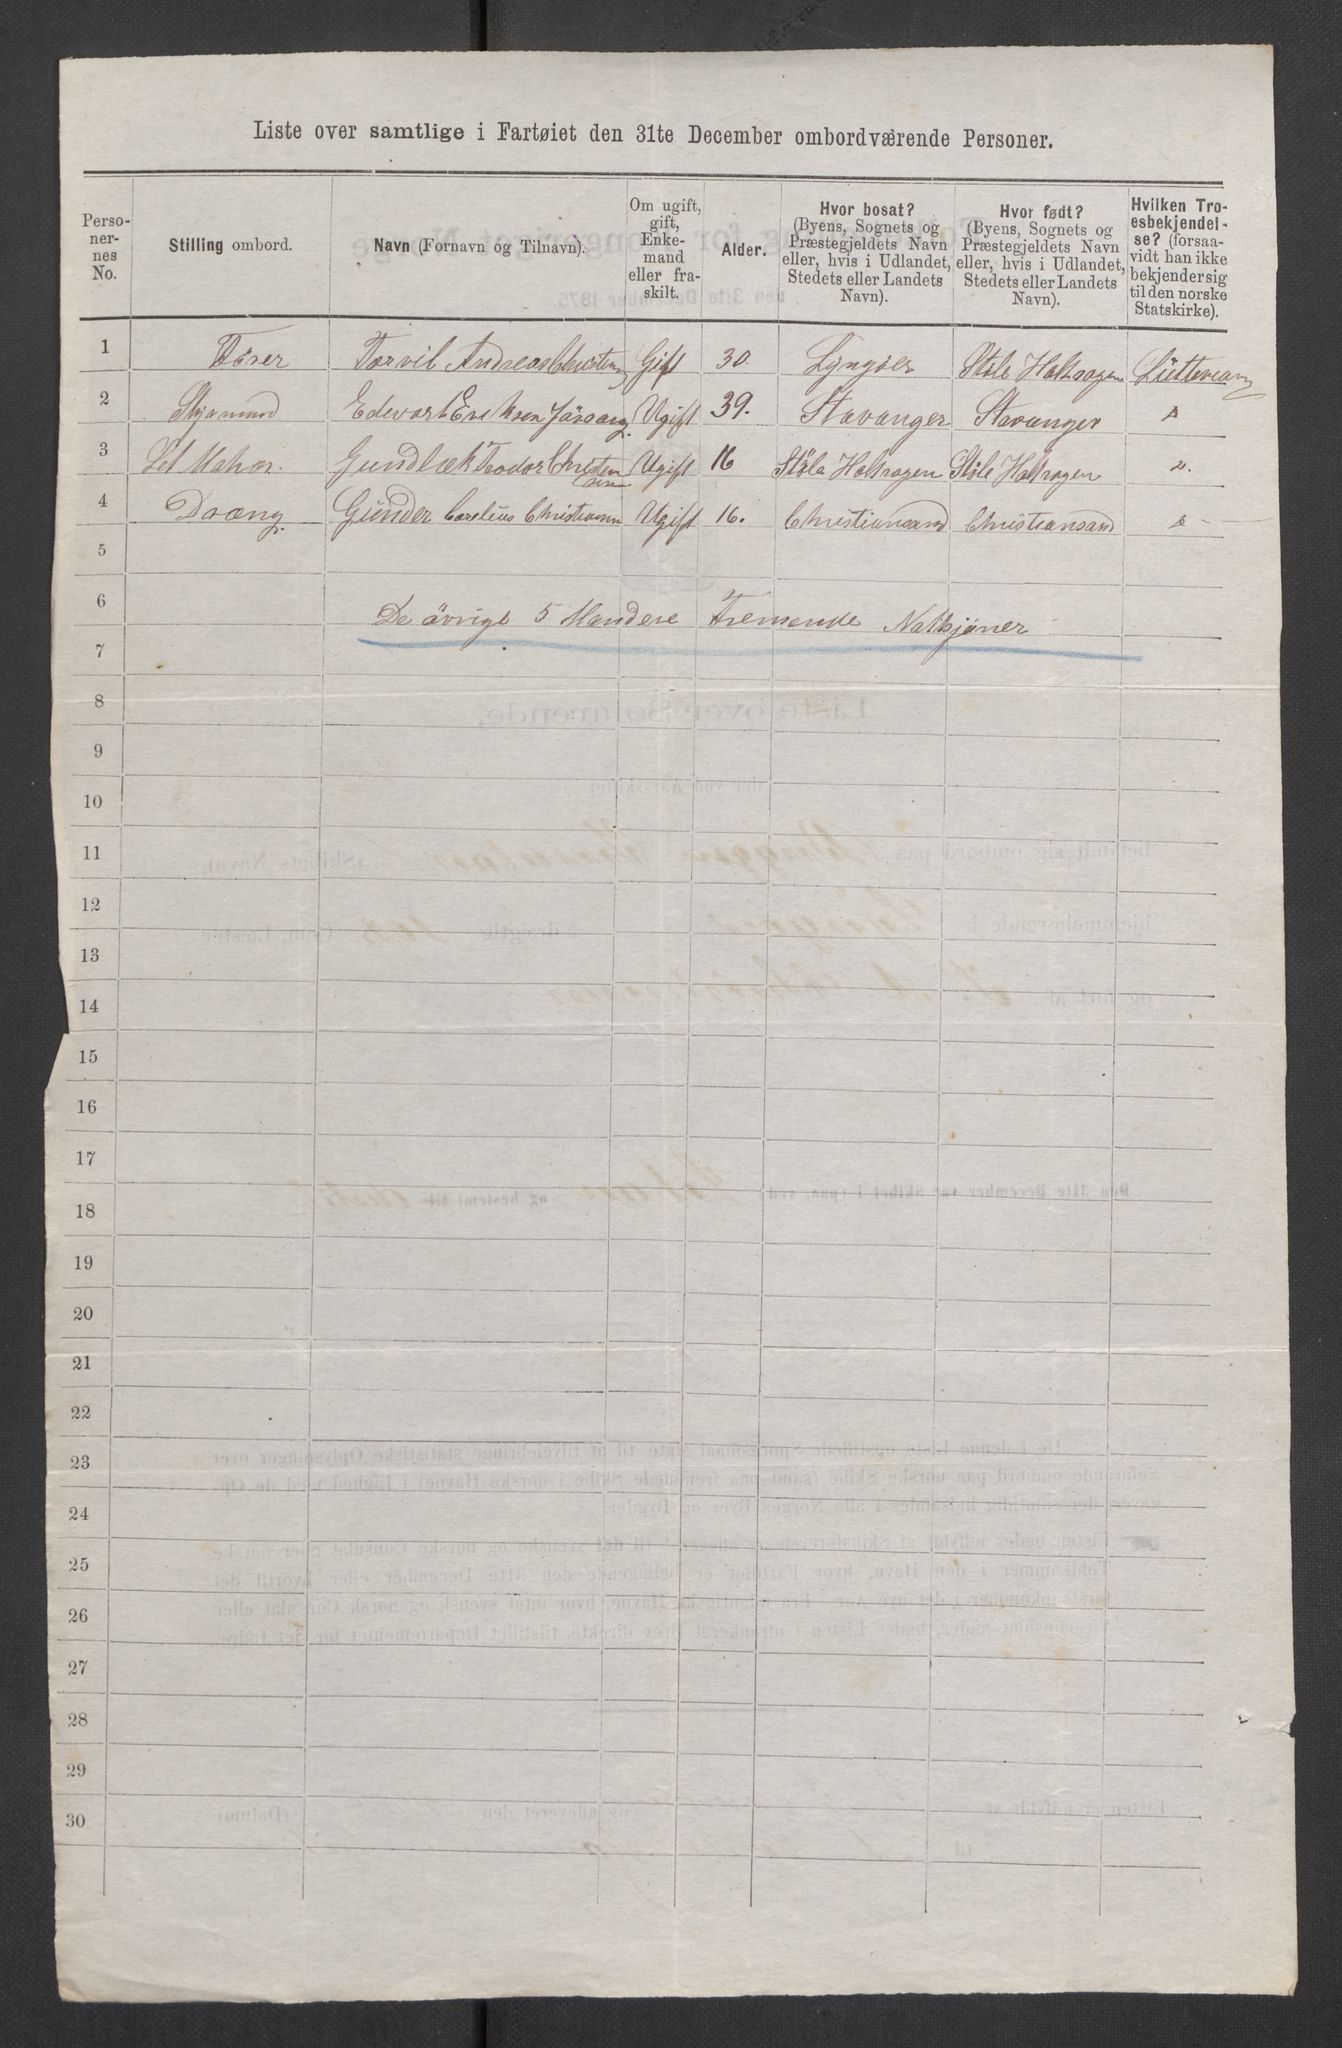 Liste over samtlige i Fartøiet den 31te December ombordværende Personer.
Personernes No. | Stilling ombord. | Navn (Fornavn og Tilnavn). | Om ugift, gift, Enkemand eller fraskilt. | Alder. | Hvor bosat? (Byens, Sognets og Præstegjeldets Navn eller, hvis i Udlandet, Stedets eller Landets Navn). | Hvor født? (Byens, Sognets og Præstegjeldets Navn eller, hvis i Udlandet, Stedets eller Landets Navn). | Hvilken Troesbekjendelse? (forsaavidt han ikke bekjender sig til den norske Statskirke).
1 Förer Torvil Andreas Christens Gift 30. Lyngöer Stöle Holtsogen
2 Styrmand Edevart Eriksen Ugift 39. Stavanger Stavanger
3 Let Matros. Gundlæk Teodor Christensen Ugift 16 Stöle Holtsogen Stöle Holtsogen
4 Dræng Günder Carelius Christiansen Ugift 16. Christiansand Christiansand
5
6 De övrige 5 Mand ere Fremende Natsjoner
7
8
9
10
11
12
13
14
15
16
17
18
19
20
21
22
23
24
25
26
27
28
29
30